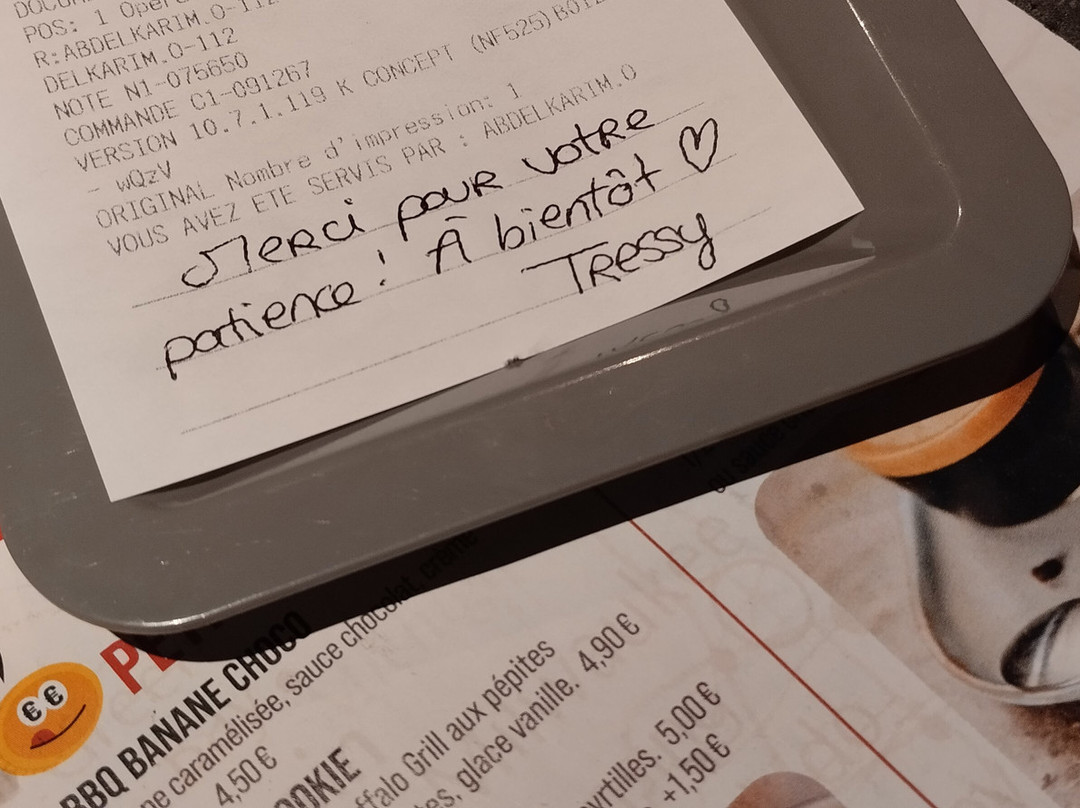 POS: 1
R:ABDELKARIM.O-112
DELKARIM.O-112
NOTE N1-075650
COMMANDE C1-091267
VERSION 10.7.1.119 K CONCEPT (NF525)
- wQzV
ORIGINAL Nombre d'impression: 1
VOUS AVEZ ETE SERVIS PAR : ABDELKARIM.O
Merci pour votre
patience ! À bientôt ♡
Tressy
BBQ BANANE CHOCO
caramélisée, sauce chocolat, crème
4,50 €
OOKIE
ffalo Grill aux pépites
glace vanille. 4,90 €
yrtilles. 5,00 €
+1,50 €